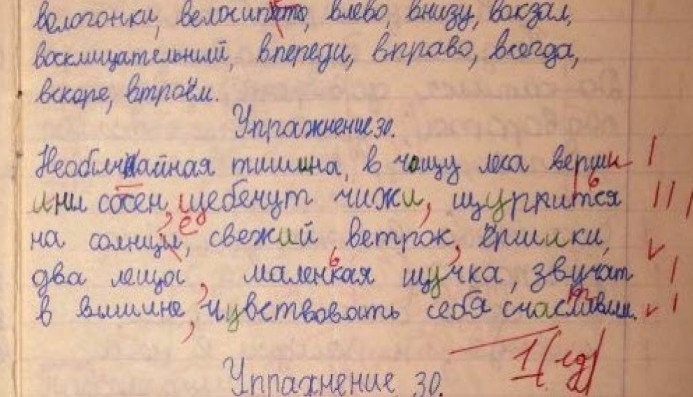 вологонки, велосипато, влево, внизу, вокзал,
восклицательный, впереди, вправо, всегда,
вскоре, втроём.
Упражнение 30.
Необычайная тишина, в чащу леса верши
ины сосен, щебечут чижи, щуркится
на солнце, свежий ветрок, ёршики,
два леща, маленкая щучка, звучат
в вишине, чувствовать себя счасливым.
1 (ед)
Упражнение 30.